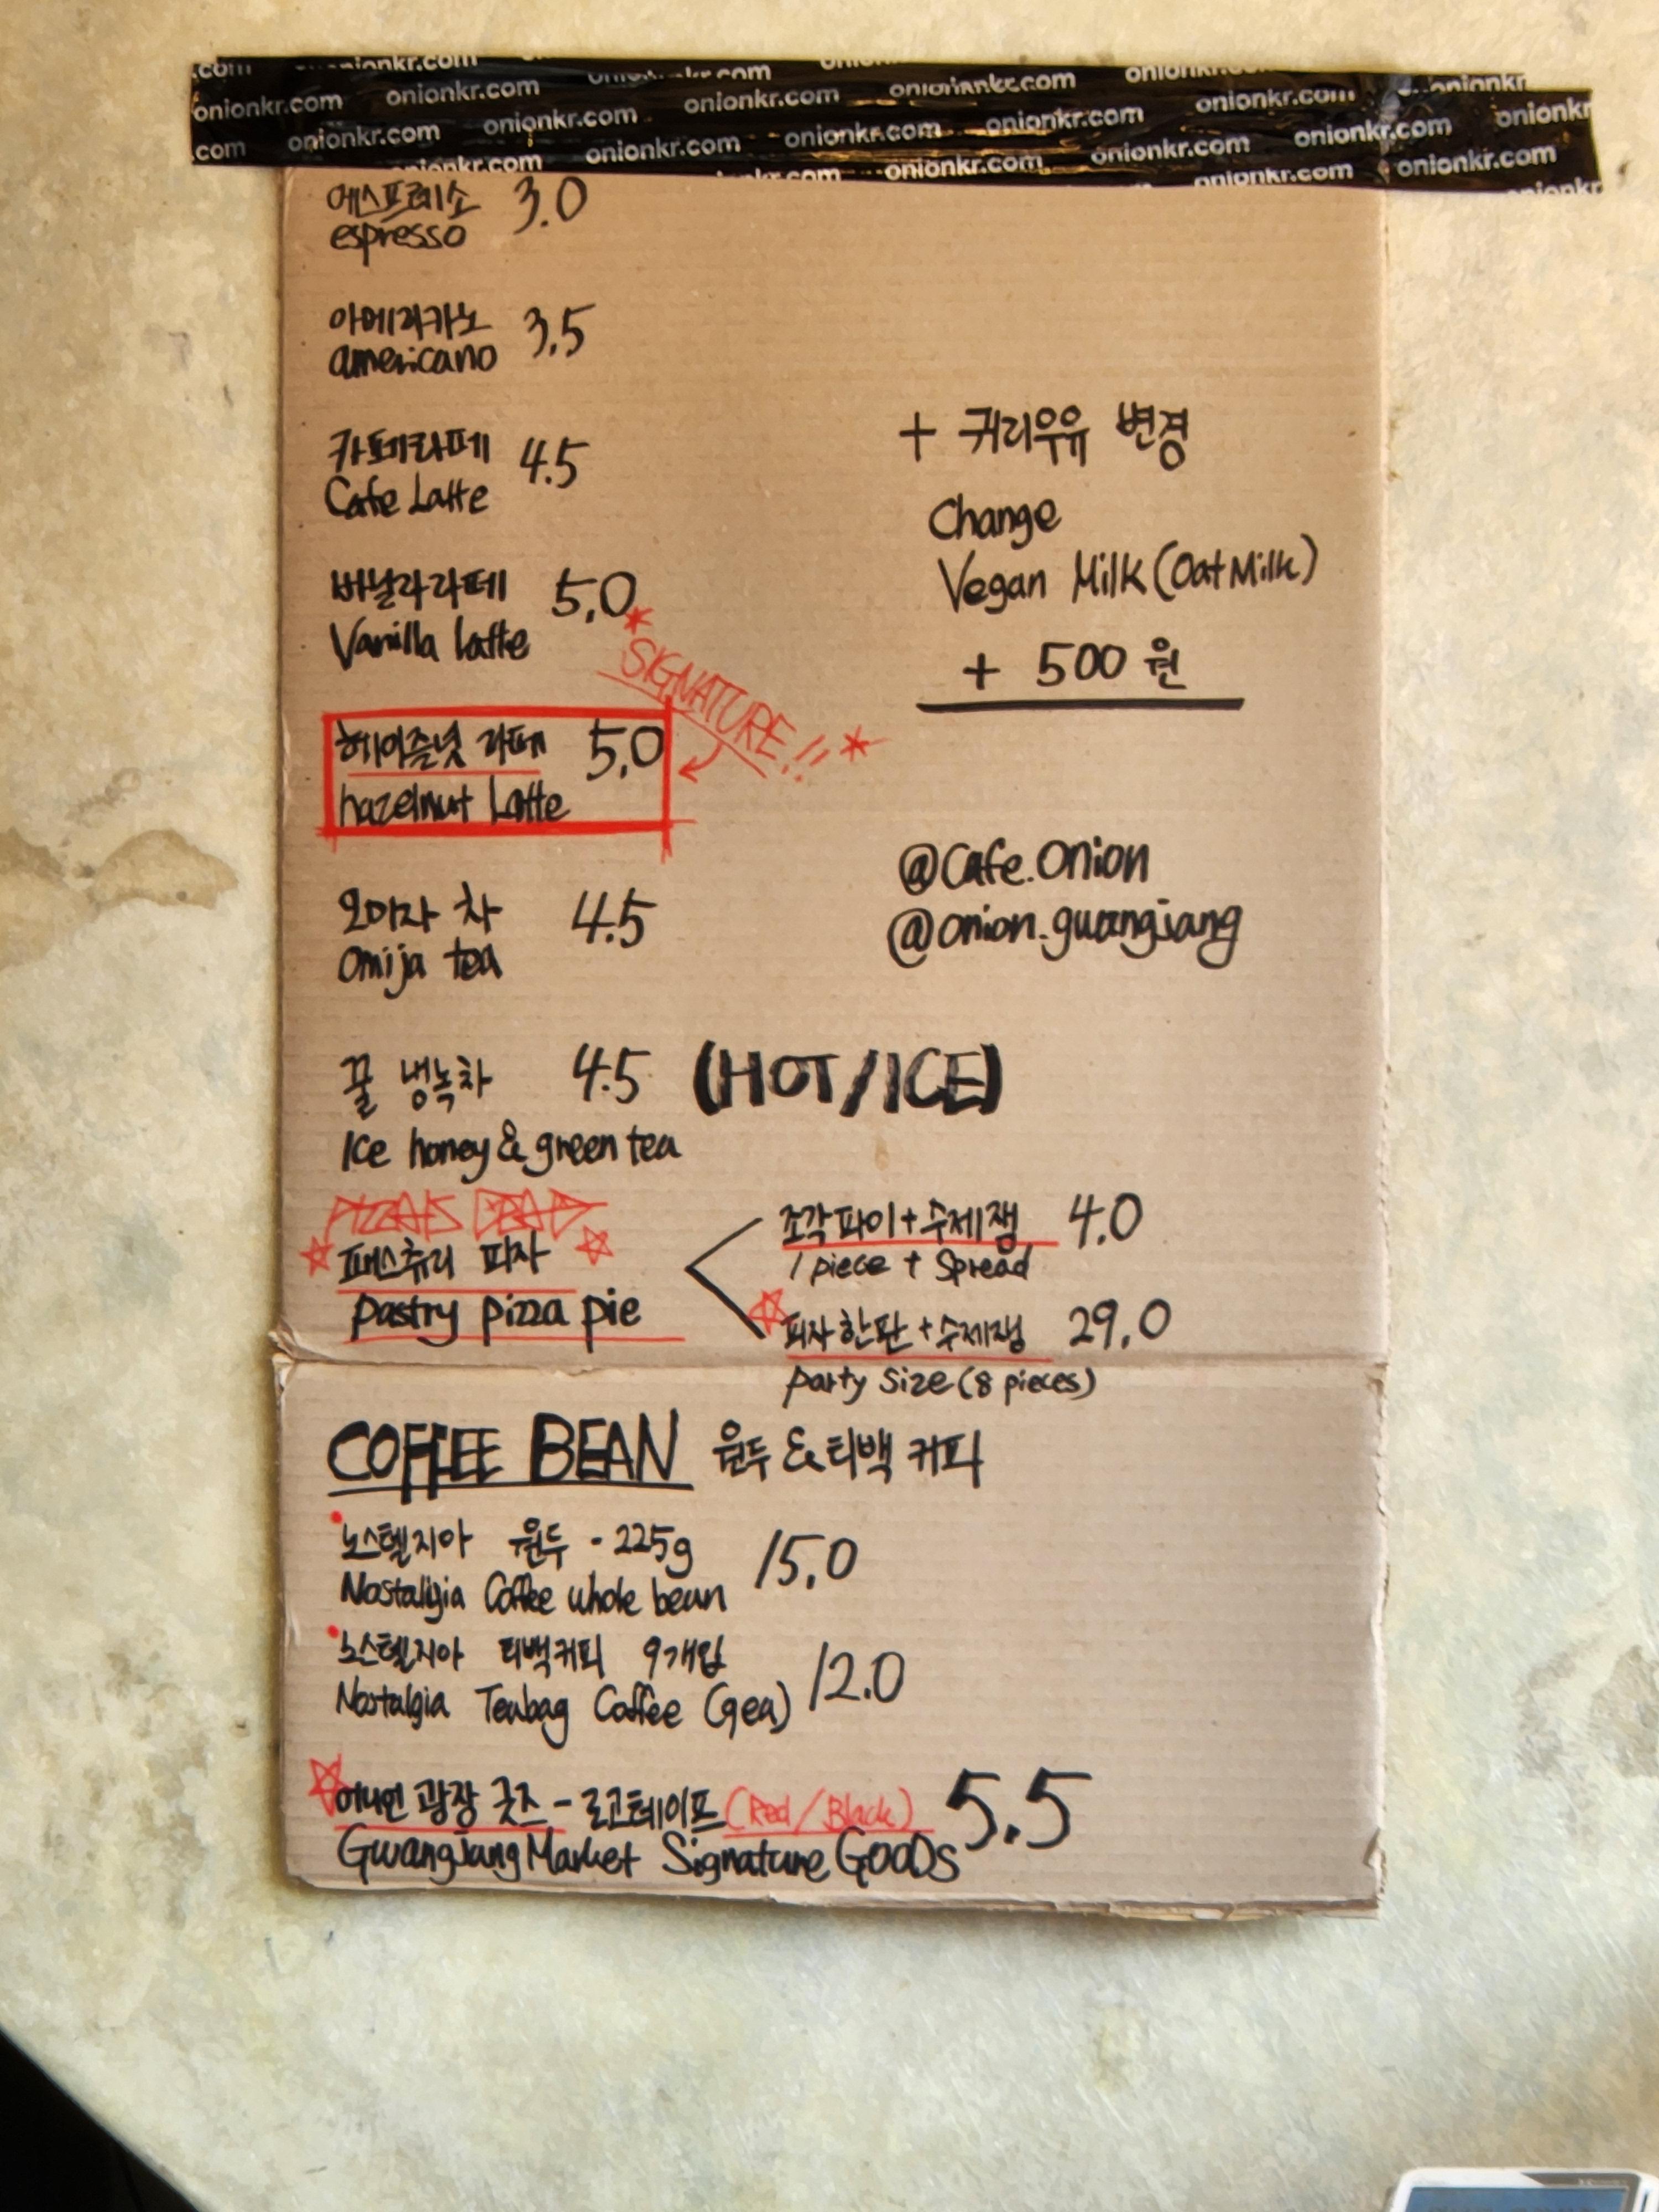 onionkr.com onionkr.com onionkr.com onionkr.com onionkr.com
onionkr.com onionkr.com onionkr.com onionkr.com onionkr.com onionkr.com
onionkr.com onionkr.com onionkr.com onionkr.com onionkr.com onionkr.com
에스프레소 3.0
espresso
아메리카노 3.5
americano
카페라떼 4.5
Cafe Latte
바닐라라떼 5.0
Vanilla latte
* SIGNATURE!! *
헤이즐넛 라떼 5.0
hazelnut Latte
오미자 차 4.5
omija tea
꿀 냉녹차 4.5 (HOT/ICE)
Ice honey & green tea
+ 귀리우유 변경
Change
Vegan Milk (Oat Milk)
+ 500 원
@Cafe.Onion
@onion.gwangjang
PIZZA IS DEAD
패스츄리 피자
pastry pizza pie
조각파이+수제잼 4.0
1 piece + Spread
피자한판+수제잼 29.0
party size (8 pieces)
COFFEE BEAN 원두 & 티백 커피
노스텔지아 원두 - 225g 15.0
Nostalgia Coffee whole bean
노스텔지아 티백커피 9개입 12.0
Nostalgia Teabag Coffee (9ea)
어니언 광장 굿즈 - 로고테이프 (Red/Black) 5.5
Gwangjang Market Signature Goods